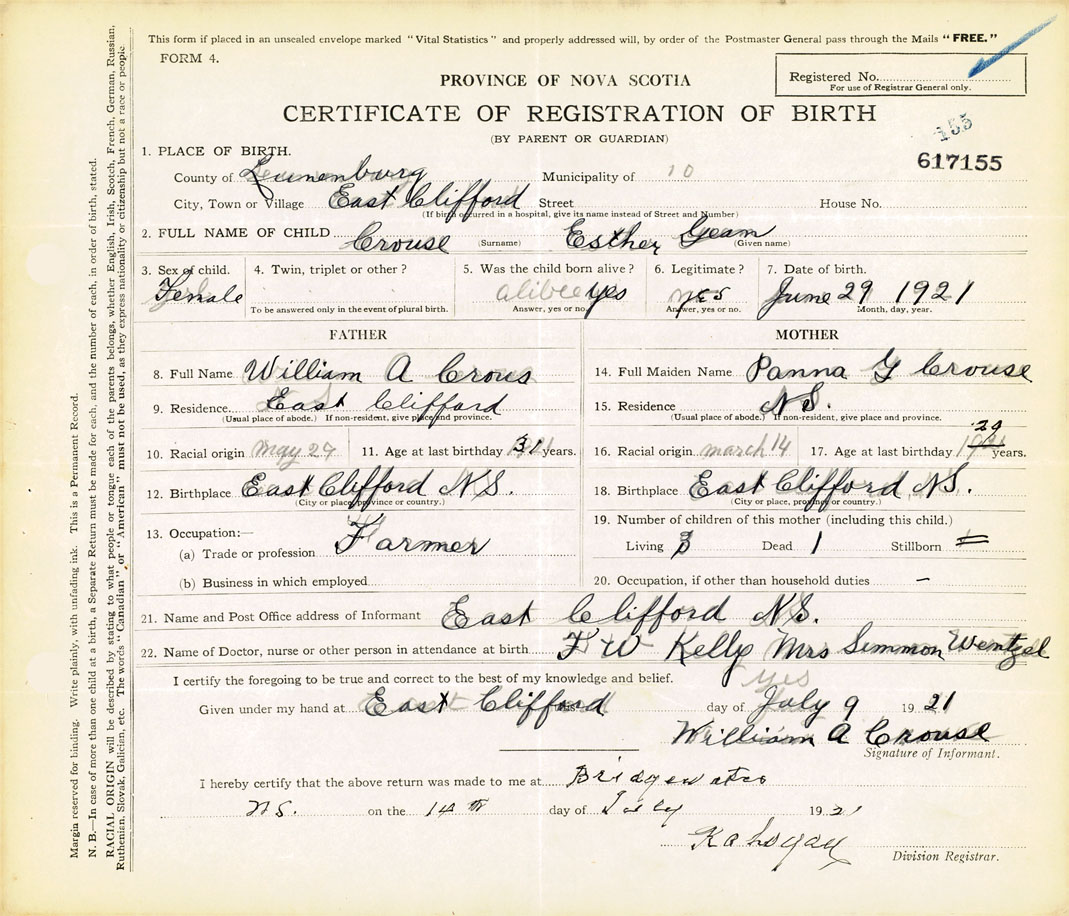 This form if placed in an unsealed envelope marked "Vital Statistics" and properly addressed will, by order of the Postmaster General pass through the Mails "FREE."
FORM 4.
PROVINCE OF NOVA SCOTIA
Registered No.
For use of Registrar General only.
CERTIFICATE OF REGISTRATION OF BIRTH
(BY PARENT OR GUARDIAN)
155
617155
1. PLACE OF BIRTH.
County of Lunenburg Municipality of 10
City, Town or Village East Clifford Street House No.
(If birth occurred in a hospital, give its name instead of Street and Number)
2. FULL NAME OF CHILD Crouse Esther Geam
(Surname) (Given name)
3. Sex of child. 4. Twin, triplet or other? 5. Was the child born alive? 6. Legitimate? 7. Date of birth.
Female yes yes June 29 1921
To be answered only in the event of plural birth. Answer, yes or no. Answer, yes or no. Month, day, year.
FATHER
8. Full Name William A Crous
9. Residence East Clifford
(Usual place of abode.) If non-resident, give place and province.
10. Racial origin may 27 11. Age at last birthday 31 years.
12. Birthplace East Clifford N S.
(City or place, province or country.)
13. Occupation:—
(a) Trade or profession Farmer
(b) Business in which employed
MOTHER
14. Full Maiden Name Panna G Crouse
15. Residence N S.
(Usual place of abode.) If non-resident, give place and province.
16. Racial origin march 14 17. Age at last birthday 29 years.
18. Birthplace East Clifford, N S.
(City or place, province or country.)
19. Number of children of this mother (including this child.)
Living 3 Dead 1 Stillborn =
20. Occupation, if other than household duties –
21. Name and Post Office address of Informant East Clifford N S.
22. Name of Doctor, nurse or other person in attendance at birth F W Kelly Mrs Simmon Wentzel
I certify the foregoing to be true and correct to the best of my knowledge and belief. yes
Given under my hand at East Clifford day of July 9 19 21
William A Crouse
Signature of Informant.
I hereby certify that the above return was made to me at Bridgewater
N S. on the 14th day of July 19 21
Division Registrar.
Margin reserved for binding. Write plainly, with unfading ink. This is a Permanent Record.
N. B.—In case of more than one child at a birth, a Separate Return must be made for each, and the number of each, in order of birth, stated.
RACIAL ORIGIN will be described by stating to what people or tongue each of the parents belongs, whether English, Irish, Scotch, French, German, Russian,
Ruthenian, Slovak, Galician, etc. The words "Canadian" or "American" must not be used, as they express nationality or citizenship but not a race or people.